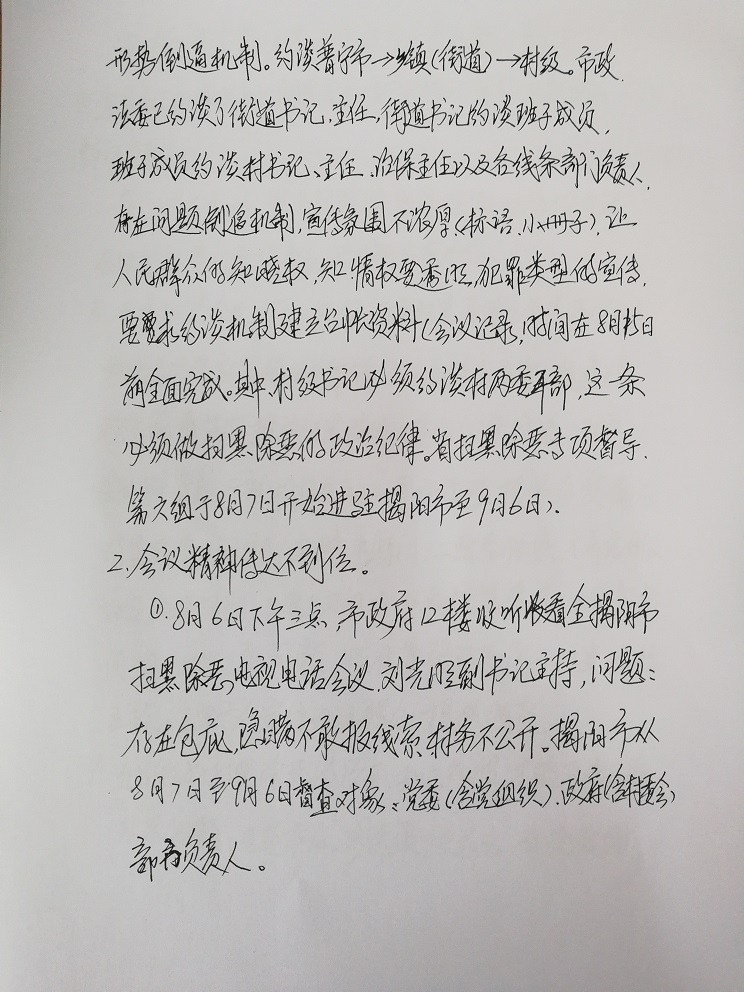 形势倒逼机制。约谈普宁市→乡镇(街道)→村级。市政
法委已约谈了街道书记、主任,街道书记约谈班子成员,
班子成员约谈村书记、主任、治保主任以及各线条部门负责人,
存在问题倒逼机制,宣传氛围不浓厚(标语、小册子),让
人民群众的知晓权,知情权要透明,犯罪类型的宣传,
要求约谈机制建立台帐资料(会议记录,时间在8月15日
前全面完成。其中,村级书记必须约谈村两委干部,这一条
必须做扫黑除恶的政治纪律。省扫黑除恶专项督导
第六组于8月7日开始进驻揭阳市至9月6日)。
2.会议精神传达不到位。
①.8月6日下午三点,市政府12楼收听收看全揭阳市
扫黑除恶电视电话会议,刘光明副书记主持,问题:
存在包庇,隐瞒不敢报线索,村务不公开。揭阳市从
8月7日至9月6日督查对象:党委(含党组织)、政府(含村委会)
部门负责人。